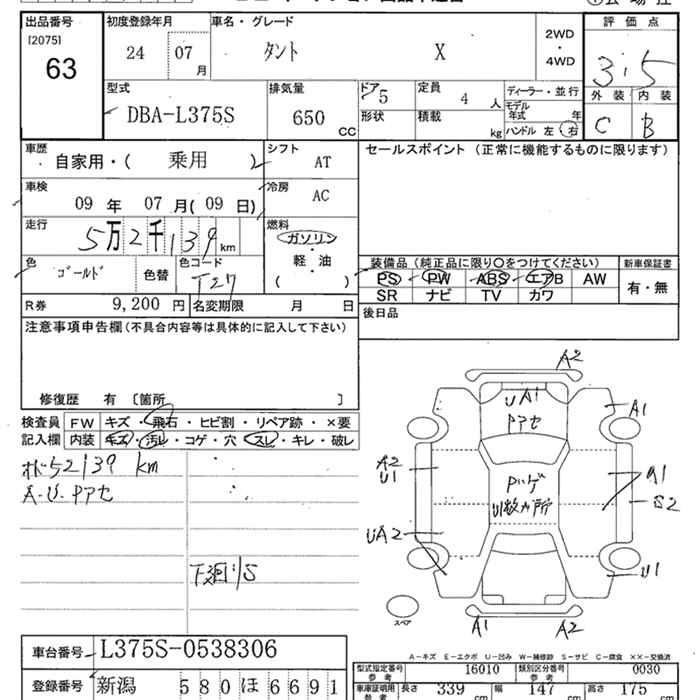 出品番号 初度登録年月 車名・グレード 2WD・4WD 評価点
[2075] 63 24 07月 タント X 3.5
外装 内装
C B
型式 排気量 ドア 定員 ディーラー・並行
DBA-L375S 650 CC 5 4 人 モデル年式 年
形状 積載 kg ハンドル 左 右
車歴 自家用・( 乗用 ) シフト AT セールスポイント (正常に機能するものに限ります)
車検 09 年 07 月 ( 09 日) 冷房 AC
走行 5万2千139km 燃料 ガソリン・軽・油 ( )
色 ゴールド 色替 色コード T27
装備品 (純正品に限り〇をつけてください) 新車保証書
PS PW ABS エアB AW 有・無
SR ナビ TV カワ
R券 9,200 円 名変期限 月 日
後日品
注意事項申告欄 (不具合内容等は具体的に記入して下さい)
修復歴 有 〔箇所 〕
検査員 FW キズ・飛石・ヒビ割・リペア跡・×要
記入欄 内装 キズ・汚レ・コゲ・穴・スレ・キレ・破レ
52139 km
A.U.Pアセ
下廻りS
A2
UA1
Pアセ
A1
A2
U1
S2
UA2
U1
A1 A2
スペア
A-キズ E-エクボ U-凹み W-補修跡 S-サビ C-腐食 ××-交換済
車台番号 L375S-0538306
型式指定番号 参考 16010 類別区分番号 参考 0030
登録番号 新潟 580ほ6691
車庫証明用 参考 長さ 339 幅 147 高さ 175 cm